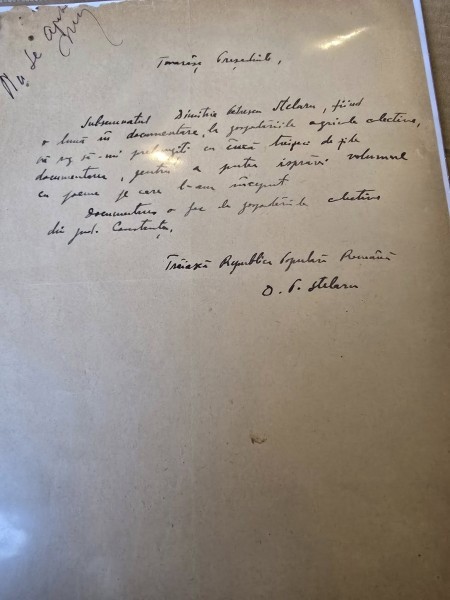 Nu se
Tovarășe Președinte,
Subsemnatul Dimitrie Petrescu Stelaru, fiind
o lună în documentare, la gospodăriile agricole colective,
vă rog să-mi prelungiți cu încă treizeci de zile
documentarea, pentru a putea isprăvi volumul
cu poeme pe care l-am început.
Documentarea o fac la gospodăriile colective
din jud. Constanța.
Trăiască Republica Populară Română
D. P. Stelaru